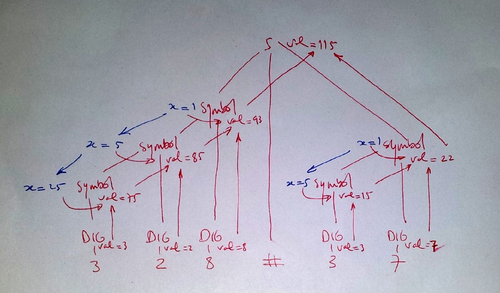 S val=115
x=1 Symbol
val=93
x=5 Symbol
val=85
x=1 Symbol
val=22
x=25 Symbol
val=75
x=5 Symbol
val=15
DIG val=3 DIG val=2 DIG val=8 DIG val=3 DIG val=7
3 2 8 # 3 7